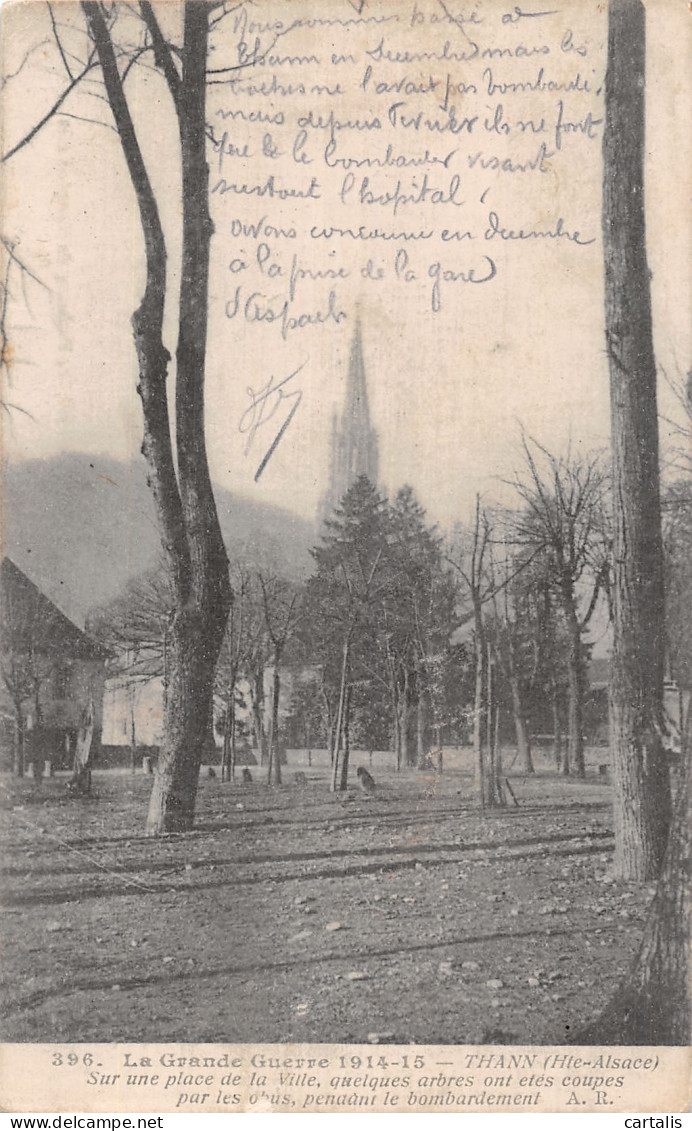 Nous sommes passé à
Thann en Décembre mais les
boches ne l'avait pas bombardé.
mais depuis Février ils ne font
que le bombarder visant
surtout l'hopital,
avons concouru en decembre
à la prise de la gare
d'Aspach
396. LA GRANDE GUERRE 1914-15 — THANN (Hte-Alsace)
Sur une place de la Ville, quelques arbres ont etés coupes
par les obus, pendant le bombardement A. R.
cartalis
www.delcampe.net